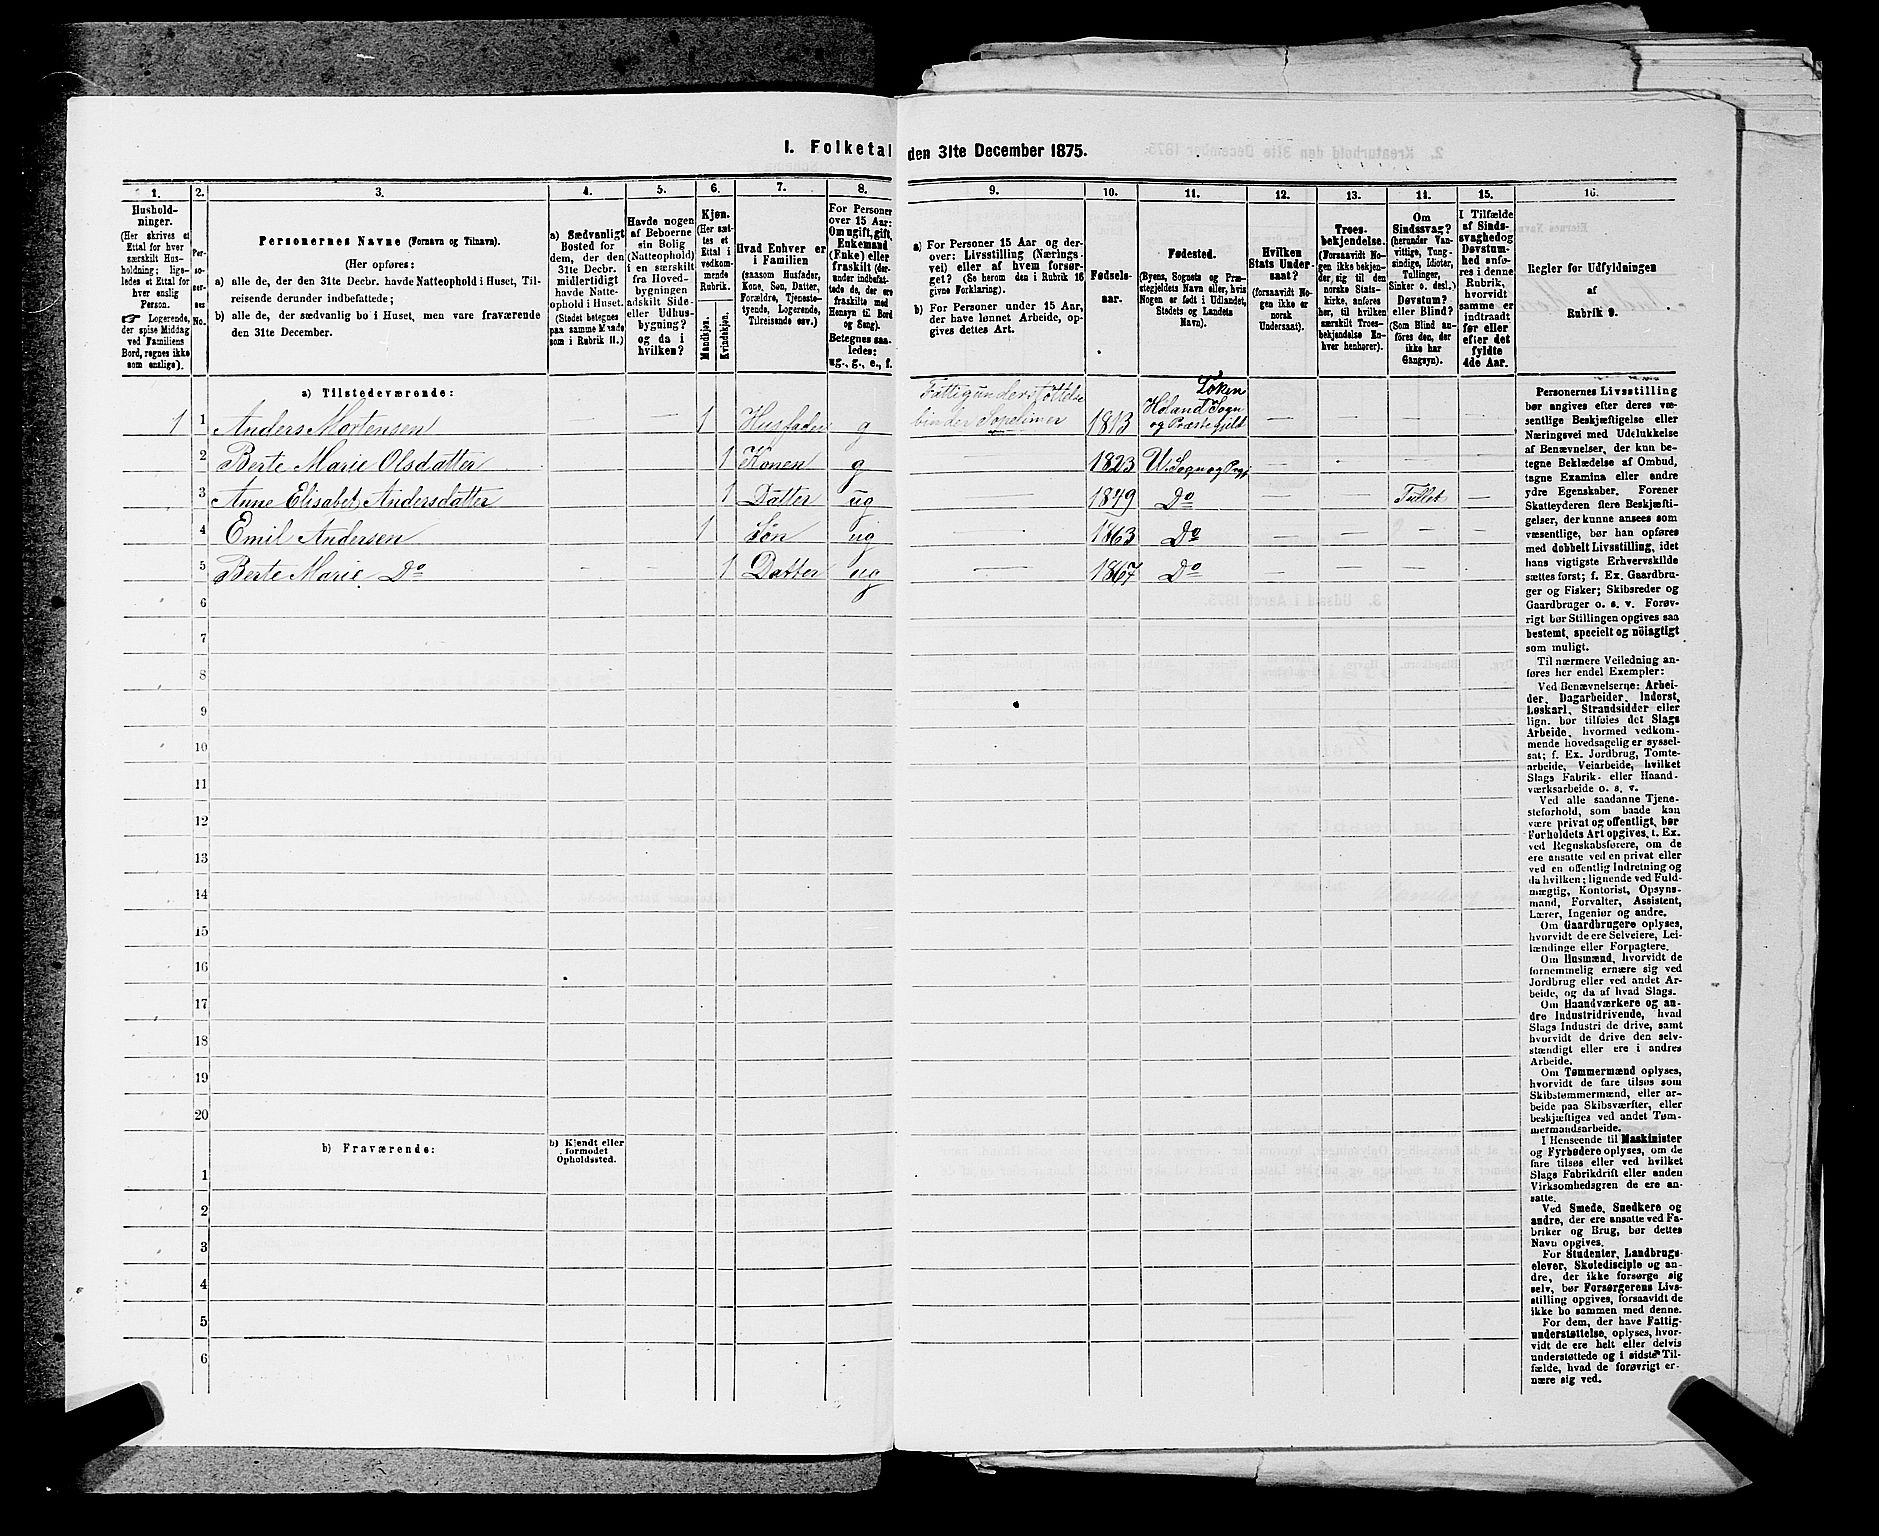 I. Folketal den 31te December 1875.
1.
Hushold-
ninger.
(Her skrives et
Ettal for hver
særskilt Hus-
holdning; lige-
ledes et Ettal for
hver enslig
Person.
☛ Logerende,
der spise Middag
ved Familiens
Bord, regnes ikke
som enslige).
2.
Per-
so-
ner-
nes
No.
3.
Personernes Navne (Fornavn og Tilnavn).
(Her opføres:
a) alle de, der den 31te Decbr. havde Natteophold i Huset, Til-
reisende derunder indbefattede;
b) alle de, der sædvanlig bo i Huset, men vare fraværende
den 31te December.
4.
a) Sædvanligt
Bosted for
dem, der den
31te Decbr.
midlertidigt
havde Natte-
ophold i Huset.
(Stedet betegnes
paa samme Maade
som i Rubrik 11.)
5.
Havde nogen
af Beboerne
sin Bolig
(Natteophold)
i en særskilt
fra Hoved-
bygningen
adskilt Side-
eller Udhus-
bygning?
og da i
hvilken?
6.
Kjøn.
(Her sæt-
tes et
Ettal i
vedkom-
mende
Rubrik.
Mandkjøn.
Kvindekjøn.
7.
Hvad Enhver er
i Familien
(saasom Husfader,
Kone, Søn, Datter,
Forældre, Tjeneste-
tyende, Logerende,
Tilreisende osv.)
8.
For Personer
over 15 Aar:
Om ugift, gift,
Enkemand
(Enke) eller
fraskilt (der-
under indbefat-
tede de, der ere
fraskilte med
Hensyn til Bord
og Seng).
Betegnes saa-
ledes:
ug., g., e., f.
9.
a) For Personer 15 Aar og der-
over: Livsstilling (Nærings-
vei) eller af hvem forsør-
get? (Se herom den i Rubrik 16
givne Forklaring).
b) For Personer under 15 Aar,
der have lønnet Arbeide, op-
gives dettes Art.
10.
Fødsels-
aar.
11.
Fødested.
(Byens, Sognets og Præ-
stegjeldets Navn eller, hvis
Nogen er født i Udlandet,
Stedets og Landets
Navn).
12.
Hvilken
Stats Under-
saat?
(forsaavidt No-
gen ikke er
norsk
Undersaat).
13.
Troes-
bekjendelse.
(Forsaavidt No-
gen ikke bekjen-
der sig til den
norske Stats-
kirke, anføres
her, til hvilken
særskilt Troes-
bekjendelse En-
hver henhører).
14.
Om
Sindssvag?
(herunder Van-
vittige, Tung-
sindige, Idioter,
Tullinger,
Sinker o. desl.)
Døvstum?
eller Blind?
(Som Blind an-
føres den, der
ikke har
Gangsyn).
15.
I Tilfælde
af Sinds-
svaghed og
Døvstum-
hed anfø-
res i denne
Rubrik,
hvorvidt
samme er
indtraadt
før eller
efter det
fyldte
4de Aar.
16.
Regler for Udfyldningen
af
Rubrik 9.
a) Tilstedeværende:
1 1 Anders Mortensen — — 1 Husfader g Fattigunderstøttelse
binder 1813 Løken
Høland Sogn
og Præstegjeld — — — —
2 Berte Marie Olsdatter — — 1 Konen g 1823 U. Sogn og Prgj — — — —
3 Anne Elisabet Andersdatter 1 Datter ug — 1849 Do — — Tullet —
4 Emil Andersen — — 1 Søn ug — 1863 Do — — — —
5 Berte Marie Do — — 1 Datter ug — 1867 Do — — — —
6
7
8
9
10
11
12
13
14
15
16
17
18
19
20
b) Fraværende:
b) Kjendt eller
formodet
Opholdssted.
1
2
3
4
5
6
Personernes Livsstilling
bør angives efter deres væ-
sentlige Beskjæftigelse eller
Næringsvei med Udelukkelse
af Benævnelser, der kun be-
tegne Beklædelse af Ombud,
tagne Examina eller andre
ydre Egenskaber. Forener
Skatteyderen flere Beskjæfti-
gelser, der kunne ansees som
væsentlige, bør han opføres
med dobbelt Livsstilling, idet
hans vigtigste Erhvervskilde
sættes først; f. Ex. Gaardbru-
ger og Fisker; Skibsreder og
Gaardbruger o. s. v. Forøv-
rigt bør Stillingen opgives saa
bestemt, specielt og nöiagtigt
som muligt.
Til nærmere Veiledning an-
føres her endel Exempler:
Ved Benævnelserne: Arbei-
der, Dagarbeider, Inderst,
Løskarl, Strandsidder eller
lign. bør tilføies det Slags
Arbeide, hvormed vedkom-
mende hovedsagelig er syssel-
sat; f. Ex. Jordbrug, Tomte-
arbeide, Veiarbeide, hvilket
Slags Fabrik- eller Haand-
værksarbeide o. s. v.
Ved alle saadanne Tjene-
steforhold, som baade kan
være privat og offentligt, bør
Forholdets Art opgives, t. Ex.
ved Regnskabsførere, om de
ere ansatte ved en privat eller
ved en offentlig Indretning og
da hvilken; lignende ved Fuld-
mægtig, Kontorist, Opsyns-
mand, Forvalter, Assistent,
Lærer, Ingeniør og andre.
Om Gaardbrugere oplyses,
hvorvidt de ere Selveiere, Lei-
lændinge eller Forpagtere.
Om Husmænd, hvorvidt de
fornemmelig ernære sig ved
Jordbrug eller ved andet Ar-
beide, og da af hvad Slags.
Om Haandværkere og an-
dre Industridrivende, hvad
Slags Industri de drive, samt
hvorvidt de drive den selv-
stændigt eller ere i andres
Arbeide.
Om Tømmermænd oplyses,
hvorvidt de fare tilsøs som
Skibstømmermænd, eller ar-
beide paa Skibsværfter, eller
beskjæftiges ved andet Tøm-
mermandsarbeide.
I Henseende til Maskinister
og Fyrbødere oplyses, om de
fare tilsøs eller ved hvilket
Slags Fabrikdrift eller anden
Virksomhedsgren de ere an-
satte.
Ved Smede, Snedkere og
andre, der ere ansatte ved Fa-
briker og Brug, bør dettes
Navn opgives.
For Studenter, Landbrugs-
elever, Skoledisciple og an-
dre, der ikke forsørge sig
selv, bør Forsørgerens Livs-
stilling opgives, forsaavidt de
ikke bo sammen med denne.
For dem, der have Fattig-
understøttelse, oplyses, hvor-
vidt de ere helt eller delvis
understøttede og i sidste Til-
fælde, hvad de forøvrigt er-
nære sig ved.